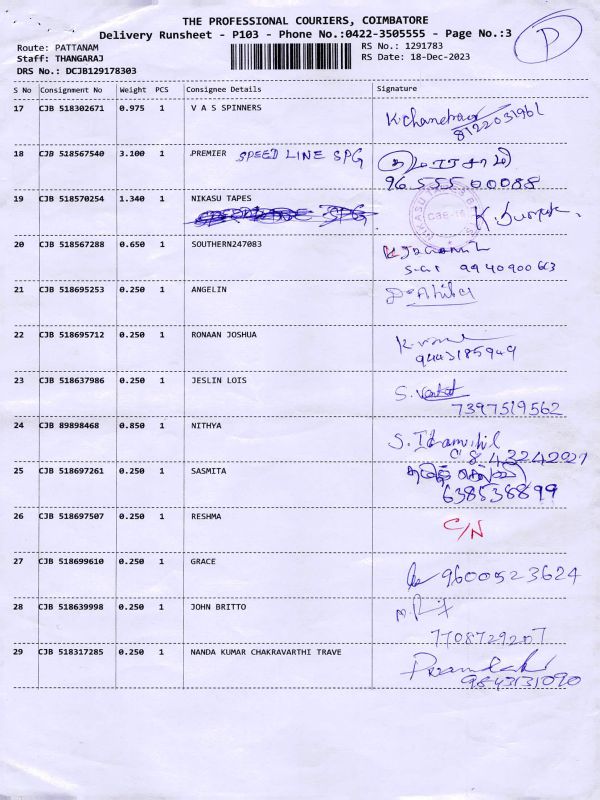 THE PROFESSIONAL COURIERS, COIMBATORE
P
Delivery Runsheet - P103 - Phone No.:0422-3505555 - Page No.:3
Route: PATTANAM
RS No.: 1291783
Staff: THANGARAJ
RS Date: 18-Dec-2023
DRS No.: DCJB129178303
S No Consignment No Weight PCS Consignee Details Signature
17 CJB 518302671 0.975 1 V A S SPINNERS
8122031961
18 CJB 518567540 3.100 1 .PREMIER SPEED LINE SPG
96 555 00088
19 CJB 518570254 1.340 1 NIKASU TAPES
20 CJB 518567288 0.650 1 SOUTHERN247083
21 CJB 518695253 0.250 1 ANGELIN
22 CJB 518695712 0.250 1 RONAAN JOSHUA
9443185949
23 CJB 518637986 0.250 1 JESLIN LOIS
7397519562
24 CJB 89898468 0.850 1 NITHYA
25 CJB 518697261 0.250 1 SASMITA
638538899
26 CJB 518697507 0.250 1 RESHMA C/N
27 CJB 518699610 0.250 1 GRACE 9600523624
28 CJB 518639998 0.250 1 JOHN BRITTO
7708729207
29 CJB 518317285 0.250 1 NANDA KUMAR CHAKRAVARTHI TRAVE
9843131090